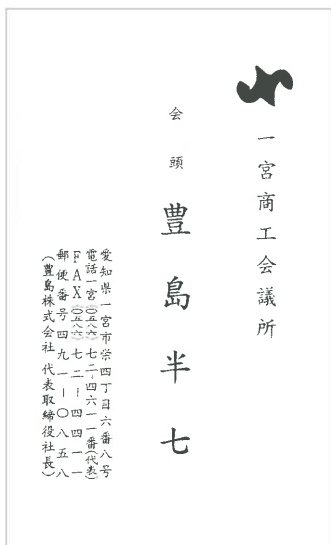 一宮商工会議所
会頭 豊島半七
愛知県一宮市栄四丁目六番八号
電話一宮(〇五八六)七二-四六一一番(代表)
FAX(〇五八六)七二-四四一一
郵便番号四九一-〇八五八
(豊島株式会社 代表取締役社長)